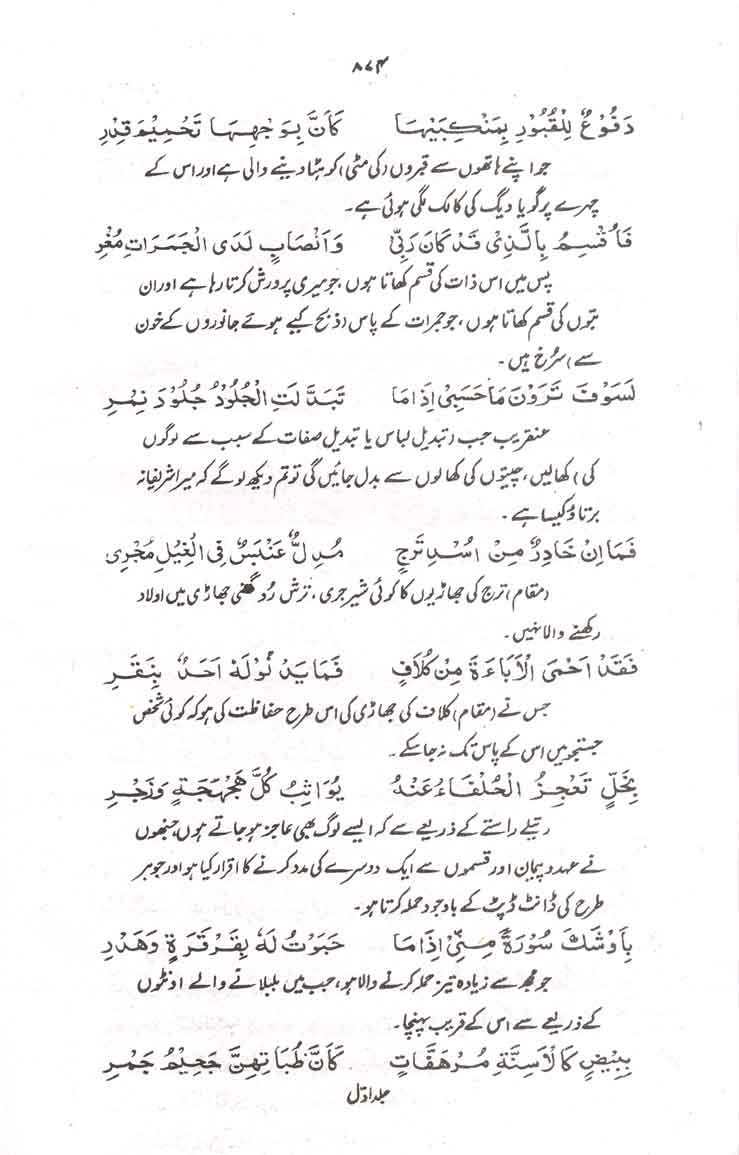 ۸۷۴
دَفُوْعٌ لِلْقُبُوْرِ بِمَنْكِبَيْهَا كَاَنَّ بِوَجْهِهَا تَحْمِيْمَ قِدْرِ
جو اپنے ہاتھوں سے قبروں (کی مٹی) کو ہٹا دینے والی ہے اور اس کے
چہرے پر گویا دیگ کی کالک لگی ہوئی ہے۔
فَاُقْسِمُ بِالَّذِیْ قَدْ كَانَ رَبِّیْ وَاَنْصَابٍ لَدَى الْجَمَرَاتِ مُغْرِ
پس میں اس ذات کی قسم کھاتا ہوں، جو میری پرورش کرتا رہا ہے اور ان
بتوں کی قسم کھاتا ہوں، جو جمرات کے پاس (ذبح کیے ہوئے جانوروں کے خون
سے) سرخ ہیں۔
لَسَوْفَ تَرَوْنَ مَا حَسَبِیْ اِذَا مَا تَبَدَّ لَتِ الْجُلُوْدُ جُلُوْدَ نِمْرِ
عنقریب جب (تبدیل لباس یا تبدیل صفات کے سبب سے لوگوں
کی) کھالیں، چیتوں کی کھالوں سے بدل جائیں گی تو تم دیکھ لو گے کہ میرا شریفانہ
برتاؤ کیسا ہے۔
فَمَا اِنْ خَادِرٌ مِنْ اُسْدِ تَرْجٍ مُدِلٌّ عَنْبَسٌ فِی الْغِيْلِ مُجْرِی
(مقام) ترج کی جھاڑیوں کا کوئی شیر جری، ترش رُو گھنی جھاڑی میں اولاد
رکھنے والا نہیں۔
فَقَدْ اَحْمَى الْاَبَاءَةَ مِنْ كُلَافٍ فَمَا يَدْ نُوْلَهٗ اَحَدٌ بِنَقْرِ
جس نے (مقام) کلاف کی جھاڑی کی اس طرح حفاظت کی ہو کہ کوئی شخص
جستجو میں اس کے پاس تک نہ جا سکے۔
بِخَلٍّ تَعْجِزُ الْحُلْفَاءُ عَنْهُ يُوَاثِبُ كُلَّ هَجْهَجَةٍ وَزَجْرِ
رتیلے راستے کے ذریعے سے کہ ایسے لوگ بھی عاجز ہو جاتے ہوں، جنھوں
نے عہد و پیمان اور قسموں سے ایک دوسرے کی مدد کرنے کا اقرار کیا ہو اور جو ہر
طرح کی ڈانٹ ڈپٹ کے باوجود حملہ کرتا ہو۔
بِاَوْشَكَ سَوْرَةً مِنِّیْ اِذَا مَا حَبَوْتُ لَهٗ بِقَرْقَرَةٍ وَهَدْرِ
جو مجھ سے زیادہ تیز حملہ کرنے والا ہو، جب میں بلبلانے والے اونٹوں
کے ذریعے سے اس کے قریب پہنچا۔
بِبِيْضٍ كَالْاَسِنَّةِ مُرْهَفَاتٍ كَاَنَّ ظُبَاتِهِنَّ جَحِيْمُ جَمْرِ
جلد اوّل